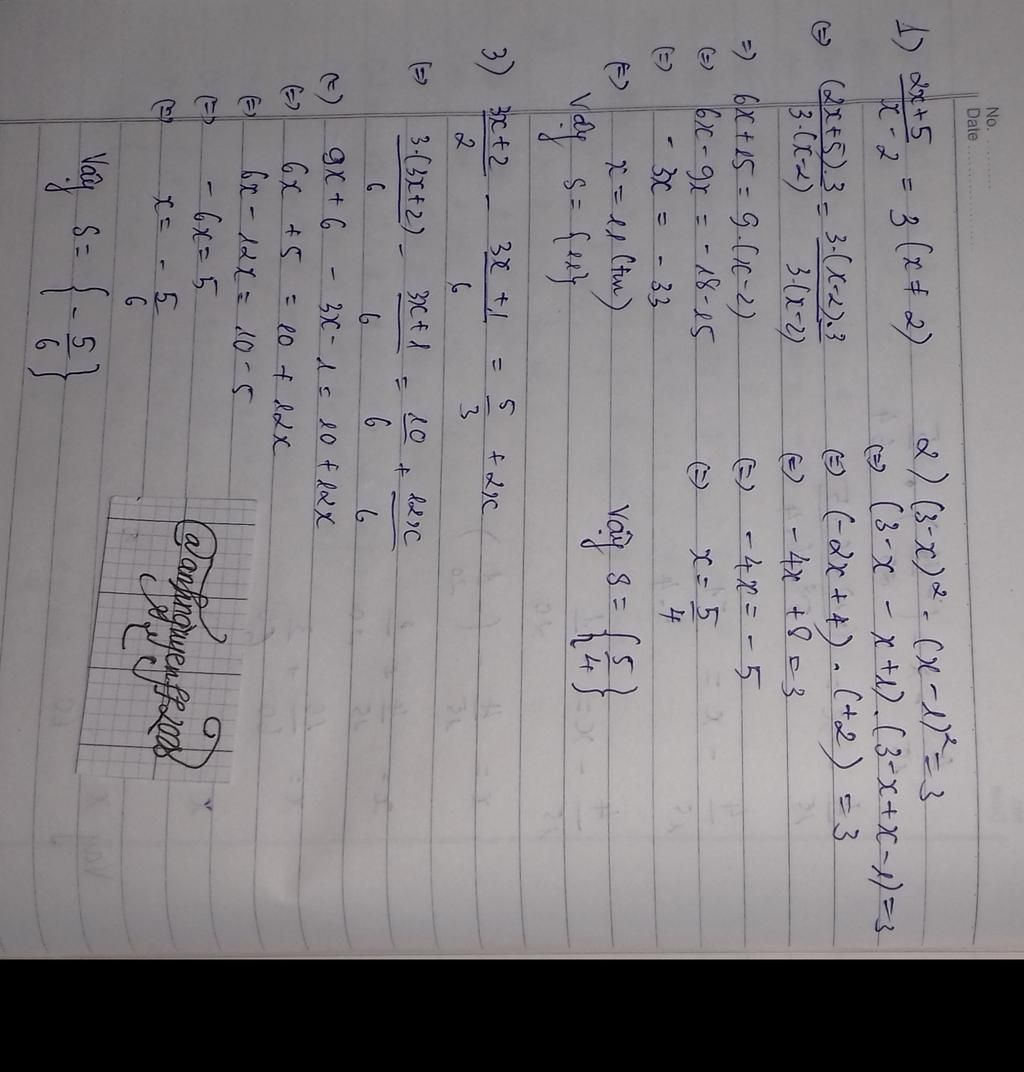 No. ........
Date ..................
1) \frac{2x+5}{x-2} = 3 (x ≠ 2)
(=) \frac{(2x+5).3}{3.(x-2)} = \frac{3.(x-2).3}{3.(x-2)}
=) 6x + 15 = 9.(x-2)
(=) 6x - 9x = -18-15
(=) - 3x = - 33
(=) x = 11 (tm)
Vậy S = {11}
2) (3-x)² - (x-1)² = 3
(=) (3-x - x+1).(3-x+x-1) = 3
(=) (-2x+4) . (+2) = 3
(=) - 4x + 8 = 3
(=) - 4x = - 5
(=) x = \frac{5}{4}
Vậy S = {\frac{5}{4}}
3) \frac{3x+2}{2} - \frac{3x+1}{6} = \frac{5}{3} + 2x
(=) \frac{3.(3x+2)}{6} - \frac{3x+1}{6} = \frac{10}{6} + \frac{12x}{6}
(=) 9x + 6 - 3x - 1 = 10 + 12x
(=) 6x + 5 = 10 + 12x
(=) 6x - 12x = 10 - 5
(=) - 6x = 5
(=) x = - \frac{5}{6}
Vậy S = {- \frac{5}{6}}